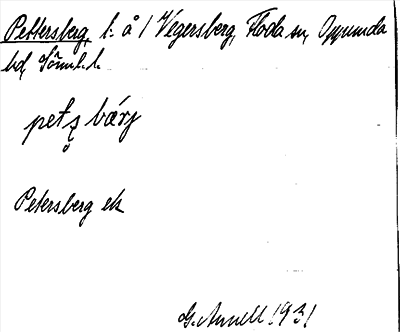 Pettersberg, l. å 1 Vegersberg, Floda sn, Oppunda
hd, Söml. l.
petş bærj
Petersberg ek
G. Arnell 1931